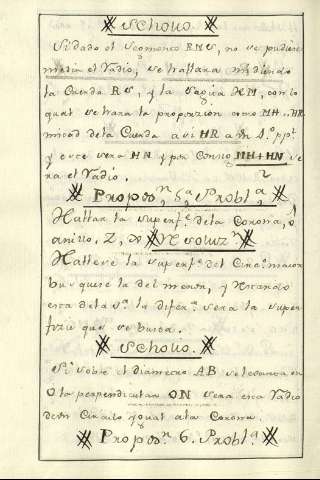 Scholio.
Si dado el segmento RMS, no se pudiere
medir el Radio, se hallara midiendo
la Cuerda RS, y la sagita HM, con lo
qual se hara la proporcion como MH a HR
mitad de la Cuerda assi HR a un 4º ppl
y este sera HN y por consig MH+HN se
ra el Radio. 2
Propos.n 5.a Probl.a
Hallar la superf.e de la Corona, ô
anillo, Z, X Resoluz.n
Hallese la superf.e del Circ.o maior
busquese la del menor, y restando
esta de la 1.a la difer.a sera la super
ficie que se busca.
Scholio.
Si sobre el diametro AB se levanta en
O la perpendicular ON sera esta Radio
de un Circulo ygual a la Corona.
Propos.n 6. Probl.a